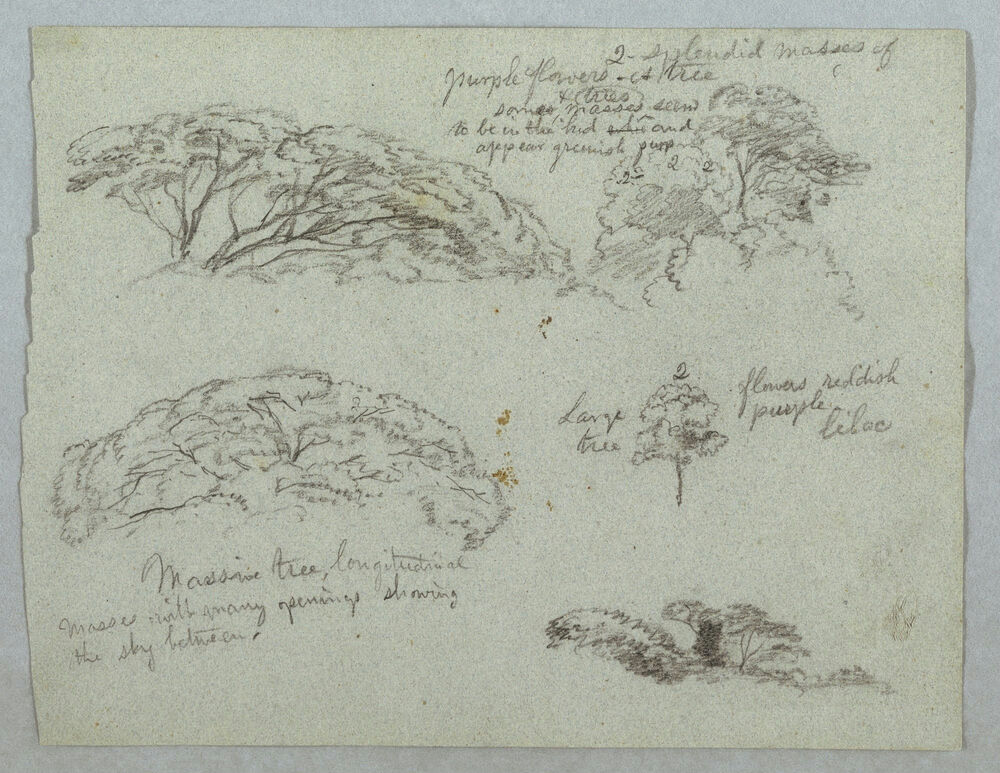 2 - splendid masses of
purple flowers - et tree
& (trees)
some masses seem
to be in the bud and
appear greenish purple
2 2
2
2
Large
tree
flowers reddish
purple
lilac
Massive tree, longitudinal
masses with many openings showing
the sky between.